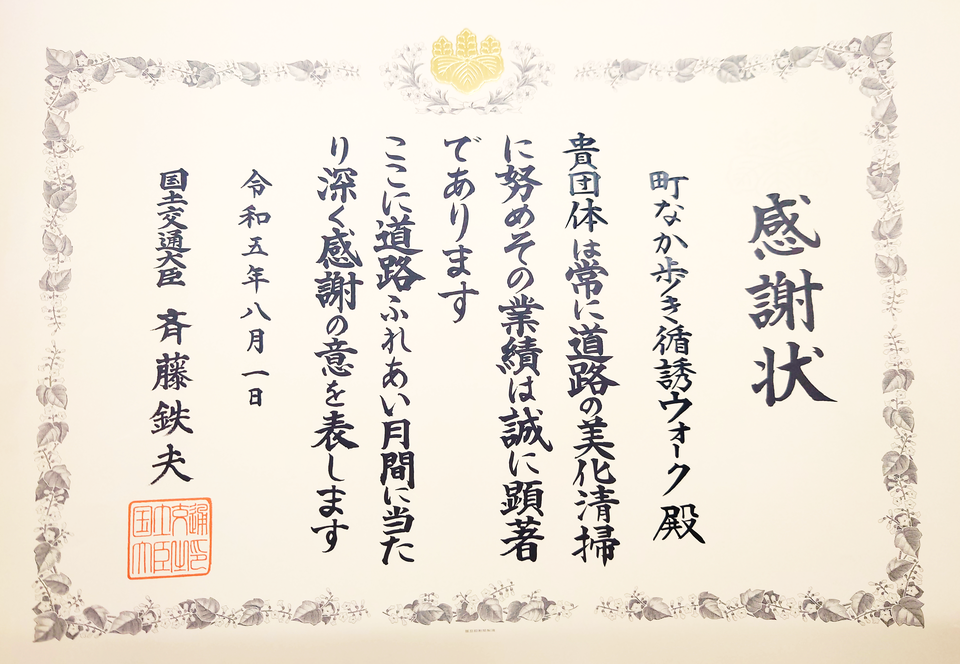 感謝状
町なか歩き循誘ウォーク殿
貴団体は常に道路の美化清掃
に努めその業績は誠に顕著
であります
ここに道路ふれあい月間に当た
り深く感謝の意を表します
令和五年八月一日
国土交通大臣 斉藤鉄夫
国土交通
大臣之印